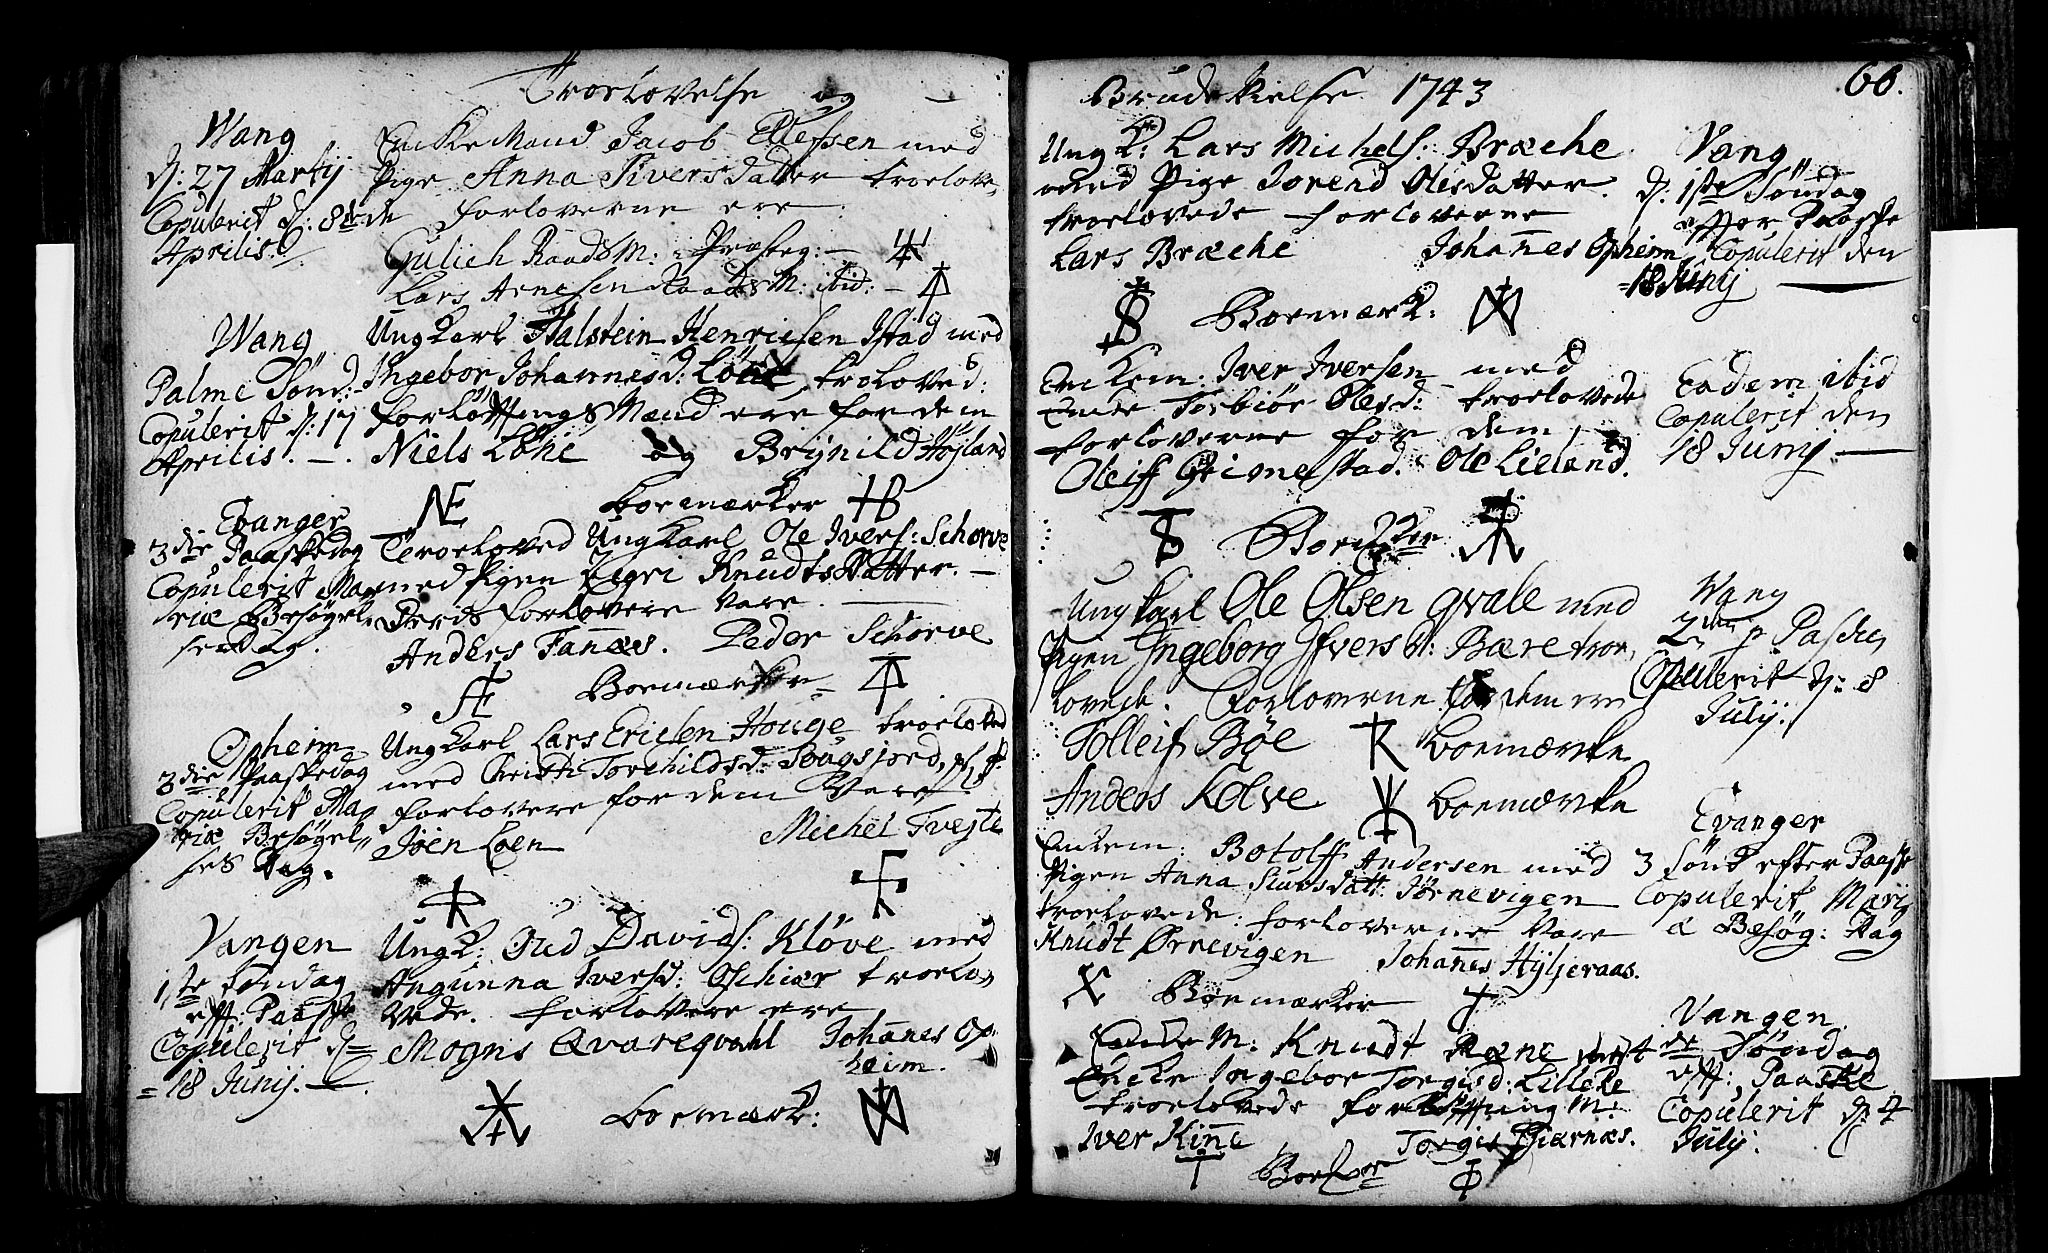 Troelovelse og
Wang
d: 27 Martij
Copulerit d: 8de
Aprilis.
EnckeMand Jacob Ellefsen med
Pige Anna SiversDatter troelove,
forloverne ere
Gulich RaadsM: 
Lars Arnesen RaadsM: ibid: —
Wang
Palme Sönd:
Copulerit d: 17
Aprilis. —
UngKarl Halstein Henricsen Istad med
Ingebor Johannesd: Löne, troloved:
forløftnings Mænd ere for dem
Niels Löne og Brÿnild Højland
NE boemærker HB
Evanger
3die Paaskedag
Copulerit Ma-
riæ Besøgel-
se Dag.
Troeloved UngKarl Ole Ivers: Schorve
med Pigen Sygri KnudtsDatter. —
Deris forlovere vare.
Anders Fanæs. Peder Schorve
Boemærker
Opheim
3die Paaskedag
Copulerit Ma-
riæ Besøgel-
ses Dag.
UngKarl Lars Ericsen Houge troeloved
med Christi Torchildsd:
forlovere for dem Vare
Jöen Loen Michel Tvejte
Vangen
1ste Søndag
eff: Paasche
Copulerit d=
=18 Junij. —
UngK: Oud Davids: Klöve med
Angunna Iversd: Schiær troelo-
vede. forlovere ere
Mogns Qvareqvahl Johañes Op-
heim.
boemærk:
Brudevielse 1743
66.
UngK: Lars Michels: Bræche
med Pige Jorend OlesDatter.
troelovede forloverne
Lars Bræche Johañes Opheim
Boemærk:
Vang
d: 1ste Söndag
effter Paaske
Copulerit den
=18 Junij —
Enckem: Iver Iversen med
Encke Torbiör Olesd: troelovede
forloverne for dem
Oleiff Grimestad. Ole Lieland.
Eadem ibid
Copulerit den
18 Junij —
UngKarl Ole Olsen Qvale med
Pigen Ingeborg Ifvers D: Bære troe-
lovede. Forloverne for dem ere
Tolleif Bøe boemærke
Anders Kolve boemærke
Wang
2 p. Pasche
Copulerit d: 8
Julij.
Enkem: Botolff Andersen med
Pigen Anna Jörnevigen
troelovede. forloverne Vare
Knudt Ørnevigen Johañes Hÿljeraas.
Boemærker
Evanger
3 Sönd efter Paaske
Copulerit Mari-
æ Besög: Dag
Encke M: Knudt Røne med
Encke Ingebor Torgisd: Lillere
troelovede forløftning M:
Iver Kiñe Torgis Giernæs.
Vangen
Söndag
eff: Paaske
Copulerit d: 4
Julij: